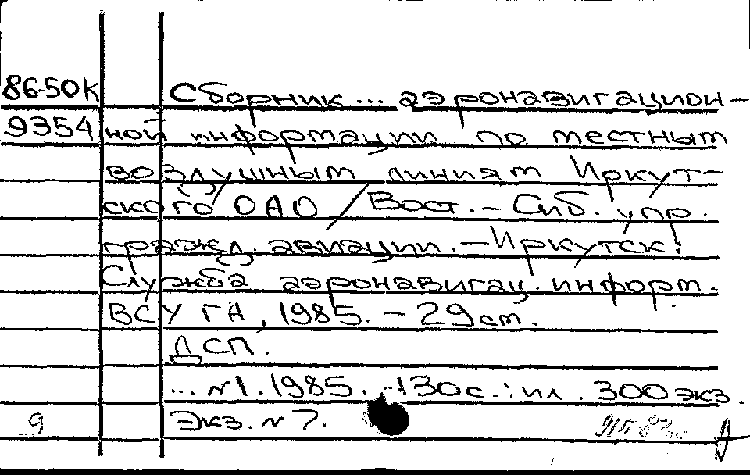 86-50К Сборник... аэронавигацион-
9354 ной информации по местным
воздушным линиям Иркут-
ского ОАО / Вост. - Сиб. упр.
гражд. авиации. - Иркутск:
Служба аэронавигац. информ.
ВСУ ГА, 1985. - 29 см.
ДСП.
... №1. 1985. -130с.: ил. 300 экз.
9 Экз. № 7.